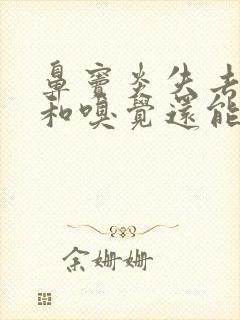 鼻竇炎失去
和嗅覺還能
余姍姍